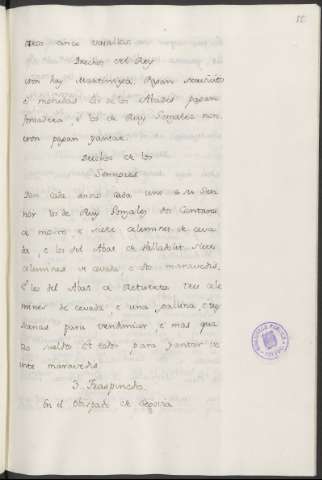 cinco vasallos
Derechos del Rey
non hay Martiniega. Pagan servicios
e monedas los de los Abades pagan
fonsadera, e los de Ruy Gonzalez non,
nron pagan yantar.
Derechos de los
Sennores
Dan cada anno cada uno a su Sen
nor los de Ruy Gonzalez dos Cantaras
de mosto e siete celemines de ceva
da, e los del Abat de Valladolit siete
celemines de cevada e sto maravedis,
e los del Abat de Retuerta tres cele
mines de cevada, e una gallina, e
para vendimiar, e mas que
sueldos et todo para yantar ve
inte maravedis
3. Traspinedo
En el Obispado de Segovia